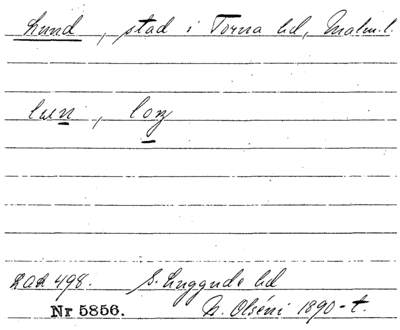 Lund, stad i Torna hd, Malm.l.
lun, lon
LAL 498. S. Luggude hd
Nr 5856. N. Olséni 1890-t.